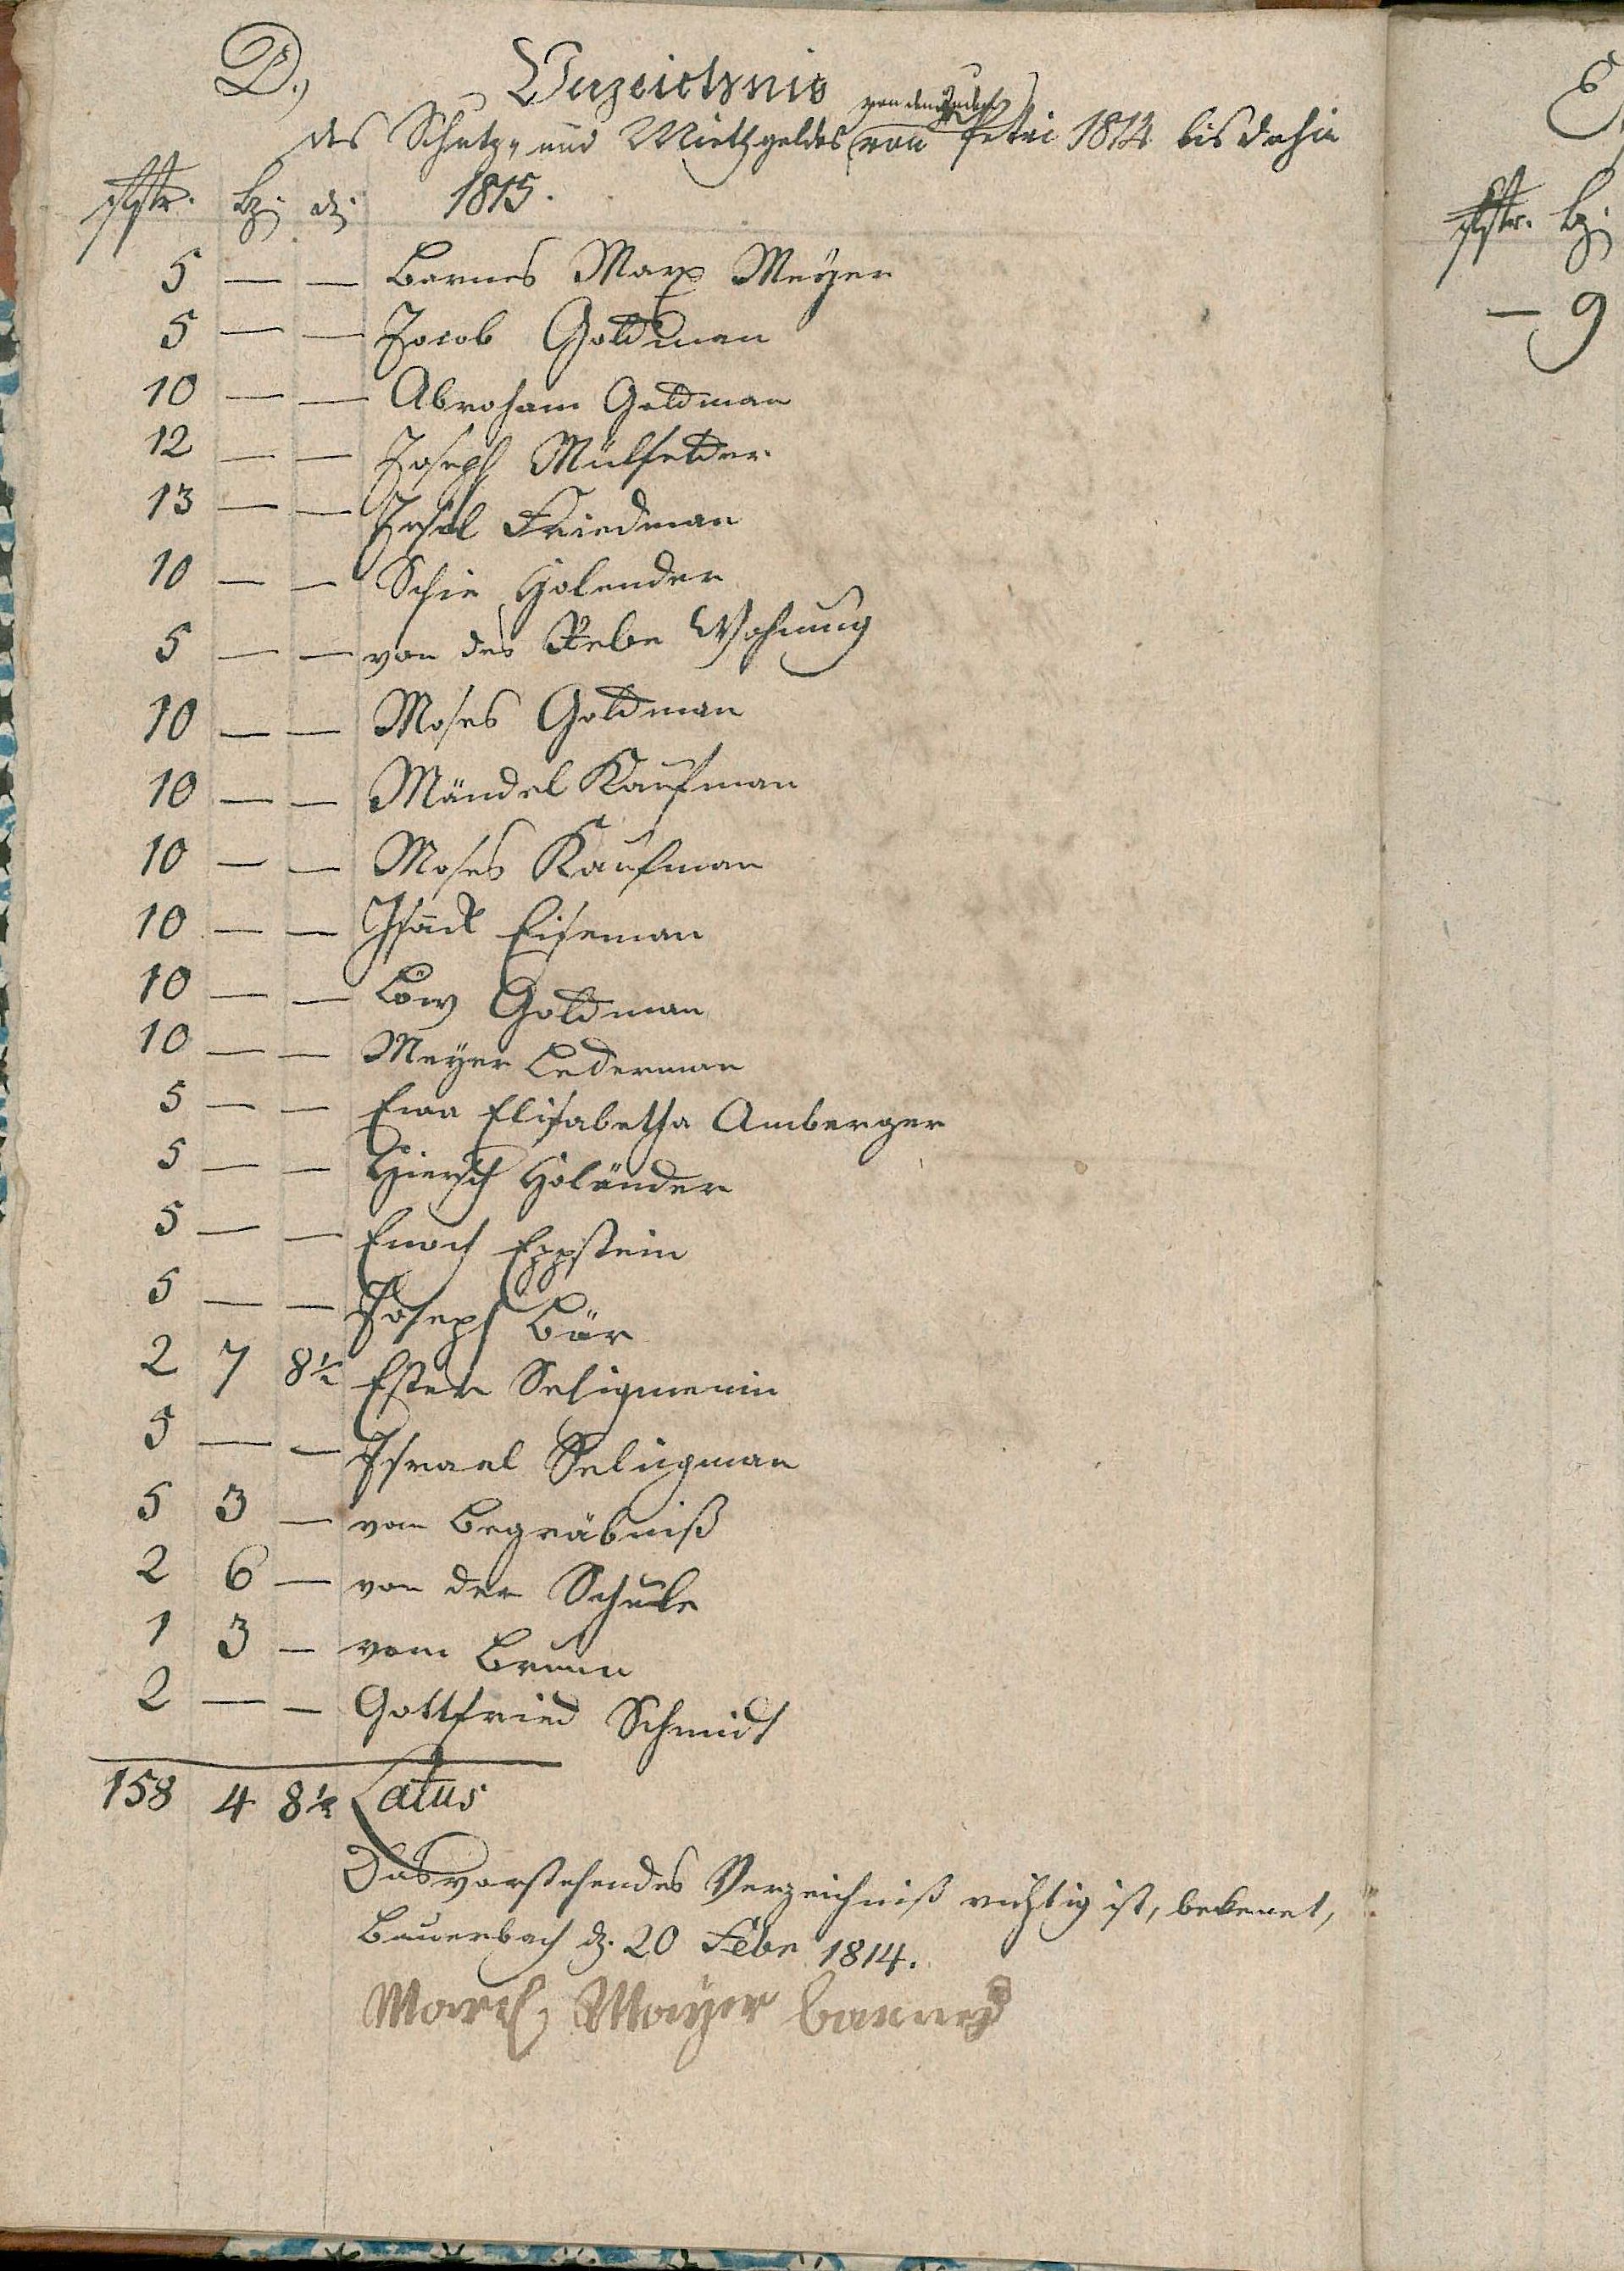 D.,
Verzeichnis
von den Juden
des Schutz- und Miethgeldes von Petri 1814 bis dahin
1815.
fl. bz. d.
5 — — Barnes Marx Meÿer
5 — — Jacob Goldman
10 — — Abraham Goldman
12 — — Joseph Mülfelder
13 — — Josel Friedman
10 — — Schie Holender
5 — — von des Rebe Wohnung
10 — — Moses Goldman
10 — — Mändel Kaufman
10 — — Moses Kaufman
10 — — Isaack Eiseman
10 — — Löw Goldman
10 — — Meÿer Lederman
5 — — Eva Elisabetha Amberger
5 — — Hiersch Holänder
5 — — Enoch Eppstein
5 — — Joseph Bär
2 7 8½ Ester Seligmenin
5 — — Israel Seligman
5 3 — vom Begräbniß
2 6 — von der Schule
1 3 — vom Brunn
2 — — Gottfried Schmidt
158 4 8½ Latus
Das vorstehendes Verzeichniß richtig ist, bekenet,
Bauerbach d. 20 Febr 1814.
March Mayer barnes
E
bz.
— 9